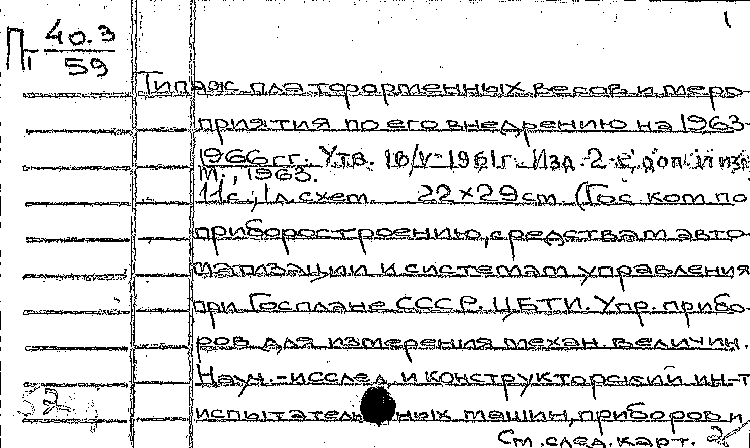 1
П1 40.3
59
Типаж платформенных весов и меро-
приятия по его внедрению на 1963-
1966 гг. Утв. 18/V-1961г. Изд. 2-е, доп. и изм.
М., 1963.
11 с.; 1 л. схем. 22×29 см (Гос. ком. по
приборостроению, средствам авто-
матизации и системам управления
при Госплане СССР. ЦБТИ. Упр. прибо-
ров для измерения механ. величин.
Науч.-исслед. и конструкторский ин-т
испытательных машин, приборов и
См. след. карт. 2